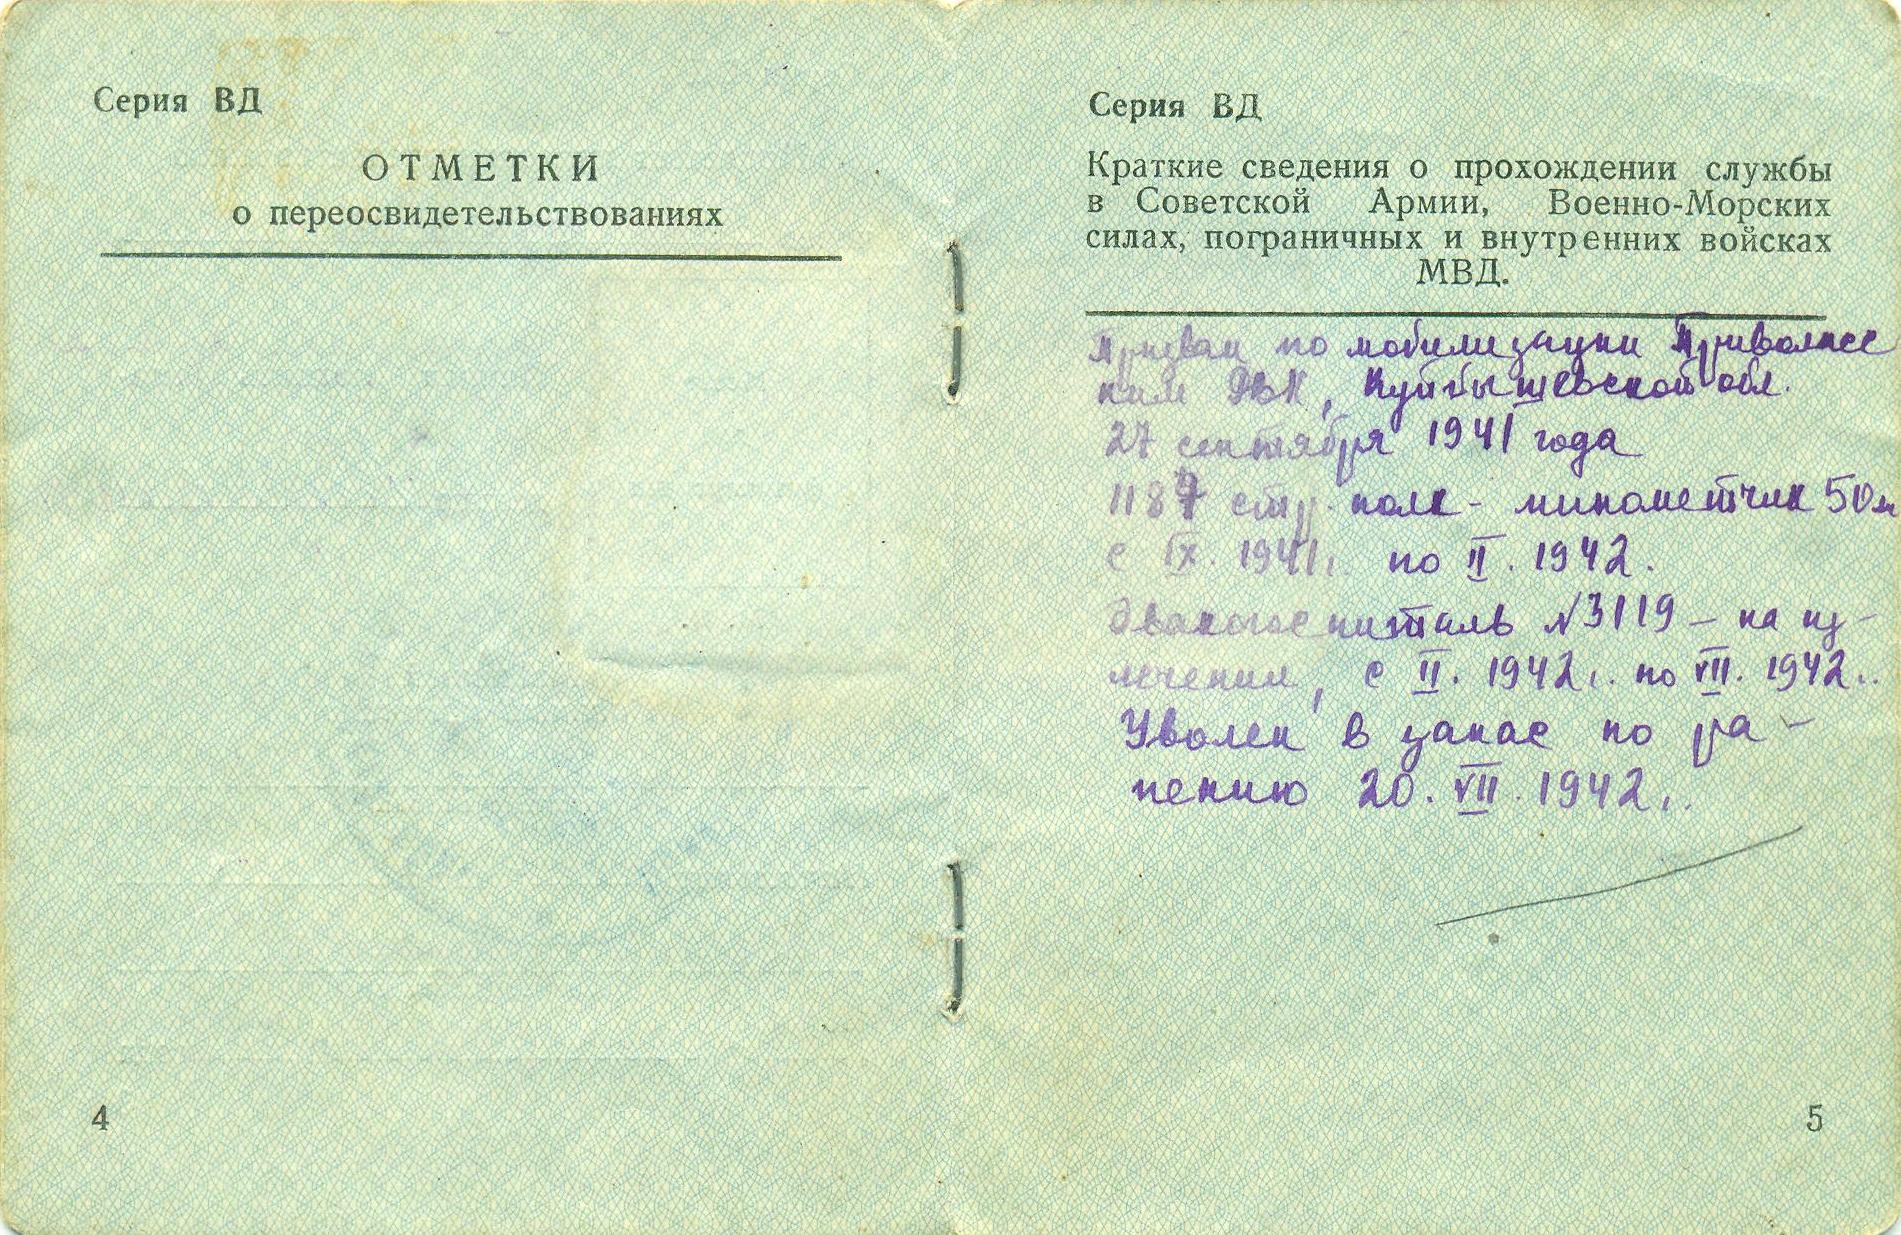 Серия ВД
ОТМЕТКИ
о переосвидетельствованиях
4
Серия ВД
Краткие сведения о прохождении службы
в Советской Армии, Военно-Морских
силах, пограничных и внутренних войсках
МВД.
Призван по мобилизации Приволжс
ким РВК, Куйбышевской обл.
27 сентября 1941 года
1187 стр. полк - минометчик 50м
с IX. 1941г. по II. 1942.
Эвакогоспиталь №3119 – на из-
лечении, с II. 1942г. по VII. 1942г.
Уволен в запас по ра-
нению 20. VII. 1942г.
5